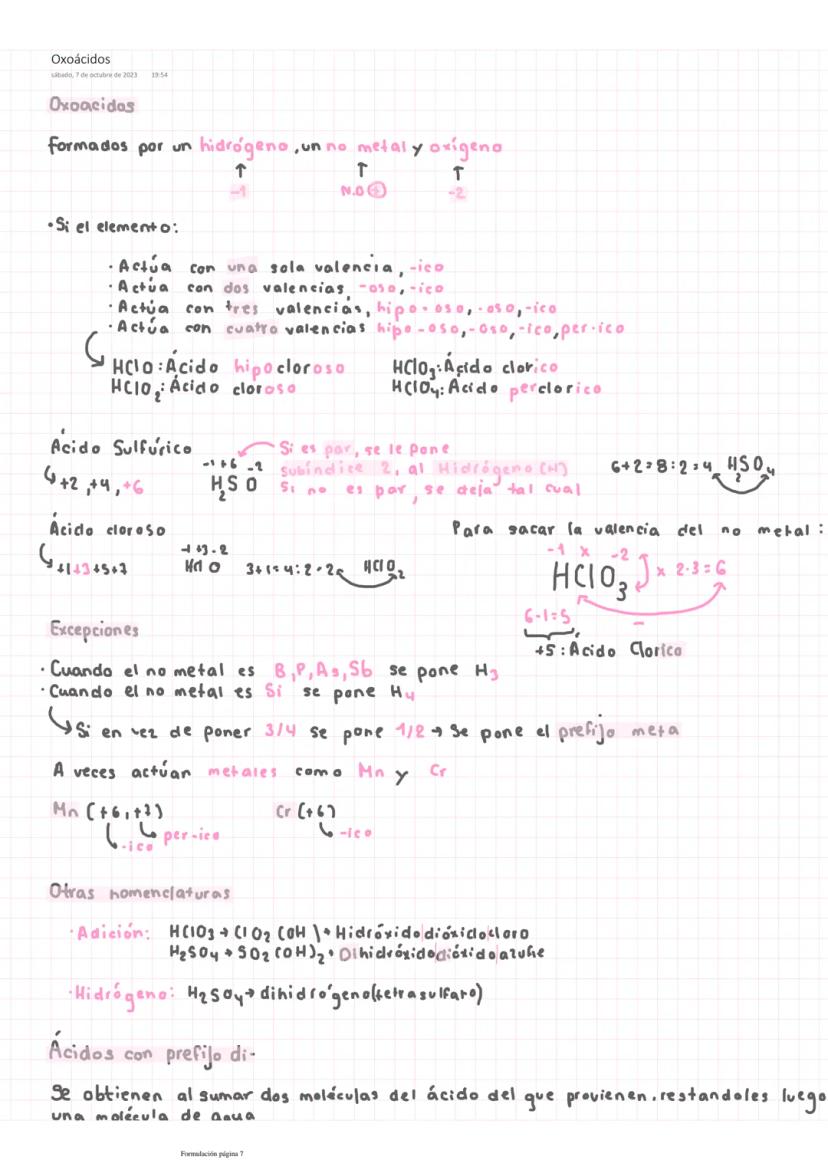 Oxoácidos
sábado, 7 de octubre de 2023 19:54
Oxoacidos
Formados por un hidrógeno, un no metal y oxígeno
-1 N.O + -2
· Si el elemento:
· Actúa con una sola valencia, -ico
· Actúa con dos valencias, -oso, -ico
· Actúa con tres valencias, hipo-oso, -oso, -ico
· Actúa con cuatro valencias hipo-oso, -oso, -ico, per-ico
HClO: Ácido hipocloroso HClO₃: Ácido clorico
HClO₂: Ácido cloroso HClO₄: Ácido perclorico
Ácido Sulfúrico Si es par, se le pone
-1 +6 -2 subíndice 2, al Hidrógeno (H) 6+2=8:2=4 H₂SO₄
+2, +4, +6 H₂S O Si no es par, se deja tal cual
Ácido cloroso Para sacar la valencia del no metal:
-1 +3 -2 -1 x -2
+1+3+5+7 HCl O 3+1=4:2=2 HClO₂ HClO₃ x 2·3=6
6-1=5 -
Excepciones +5: Ácido Clorico
· Cuando el no metal es B, P, As, Sb se pone H₃
· Cuando el no metal es Si se pone H₄
Si en vez de poner 3/4 se pone 1/2 → Se pone el prefijo meta
A veces actúan metales como Mn y Cr
Mn (+6, +7) Cr (+6)
-ico per-ico -ico
Otras nomenclaturas
· Adición: HClO₃ → ClO₂(OH) → Hidróxido|dióxido|cloro
H₂SO₄ → SO₂(OH)₂ → Dihidróxido|dióxido|azufre
· Hidrógeno: H₂SO₄ → dihidrógeno(tetrasulfaro)
Ácidos con prefijo di-
Se obtienen al sumar dos moléculas del ácido del que provienen, restandoles luego
una molécula de agua
Formulación página 7